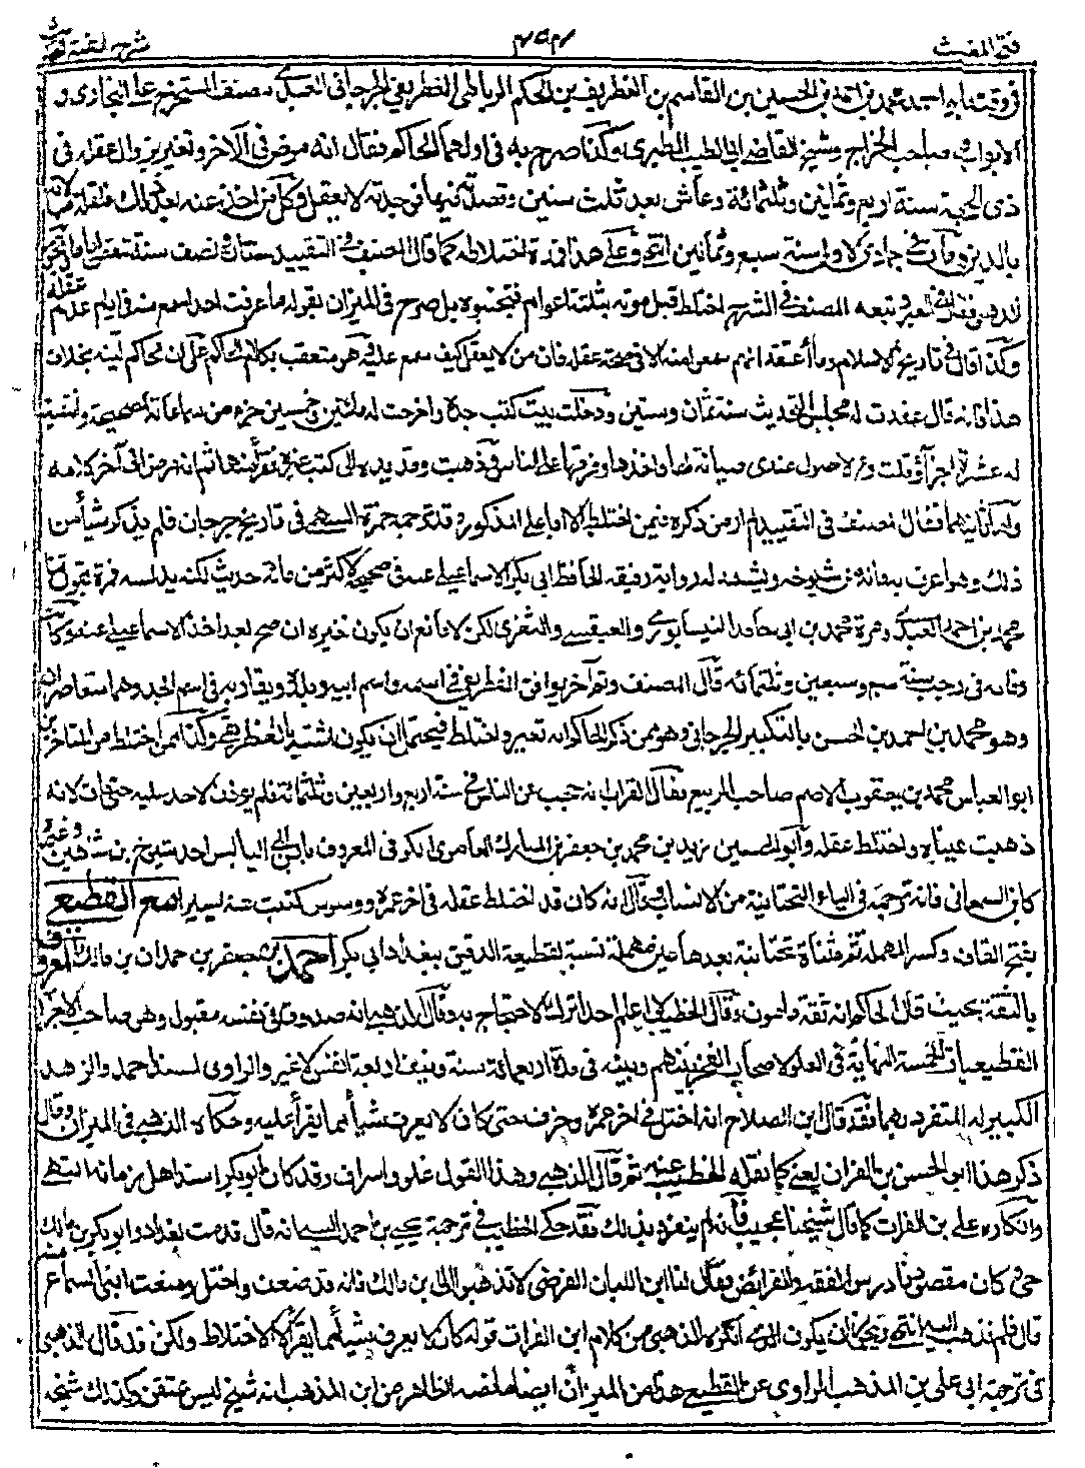 فتح المغيث
شرح الفية
في وقتنا به احمد محمد بن احمد بن الحسين بن القاسم بن الغطريف بن الحكم الرباطي الغطريفي الجرجاني العبدي مصنف المستخرج على البخاري و
الابواب وصاحب الخراج وشيخ القاضي ابي الطيب الطبري وكذا صرح به في اولهما الحاكم فقال انه مرض في الآخر وتغير بزوال عقله في
ذي الحجة سنة اربع وثمانين وثلثمائة وعاش بعد ثلث سنين وقصدته فيها فوجدته لا يعقل وكل من اخذ عنه بعد ذلك فلقلة مبالاته
بالدين ومات في جمادى الاولى سنة سبع وثمانين انتهى وعلى هذا فمدة اختلاطه كما قال المصنف في التقييد سنتان ونصف سنة
الذهبي فقال في العبر وتبعه المصنف في الشرح اختلط قبل موته بثلثة اعوام فتجنبوه بل صرح في الميزان بقوله ما عرفت احدا سمع منه في ايام عدم عقله
وكذا قال في تاريخ الاسلام وما أعتقد انهم سمعوا منه الا في صحة عقله فان من لا يعقل كيف يسمع عليه وهو متعقب بكلام الحاكم على ان الحاكم لينه بخلاف
هذا فانه قال عقدت له مجلس الحديث سنة ثمان وستين ودخلت بيت كتب جده واخرجت له مائتين وخمسين جزء من سماعاته الصحيحة وانتقيت
له عشرة اجزاء وقلت دع الاصول عندي صيانة لها فاخذها وفرقها على الناس فذهبت ومد يده الى كتب غيره فقرأ منها ثم انه مرض الى آخر كلامه
واما ثانيهما فقال المصنف في التقييد لم ار من ذكره فيمن اختلط الا ابا علي المذكور وقد ترجمه حمزة السهمي في تاريخ جرجان فلم يذكر شيأ من
ذلك وهو اعرف به فانه من شيوخه ويشهد له رواية رفيقه الحافظ ابي بكر الاسماعيلي عنه في صحيحه لاكثر من مائة حديث لكنه يدلسه فمرة يقول حدثنا
محمد بن احمد العبدي ومرة محمد بن ابي حامد النيسابوري والعبقسي والثغري لكن لا مانع ان يكون تغيره ان صح بعد اخذ الاسماعيلي عنه وكانت
وفاته في رجب سنة سبع وسبعين وثلثمائة قال المصنف وثم آخر يوافق الغطريفي في اسمه واسم ابيه وبلده ويقاربه في اسم الجد وهما متعاصران
وهو محمد بن احمد بن الحسن بالتكبير الجرجاني وهو ممن ذكر الحاكم انه تغير واختلط فيحتمل ان يكون اشتبه بالغطريفي وكذا ممن اختلط من المتأخرين
ابو العباس محمد بن يعقوب الاصم صاحب الربيع فقال القراب انه حجب عن الناس في سنة اربع واربعين وثلثمائة فلم يؤذن لاحد عليه حتى مات لانه
ذهبت عيناه واختلط عقله وابو الحسين يزيد بن محمد بن جعفر بن المبارك العامري الكوفي المعروف بابن ابي اليابس احد شيوخ بن شاهين وغيره
كابن السمعاني فانه ترجمه في الياء التحتانية من الانساب وقال انه كان قد اختلط عقله في آخر عمره ووسوس كتبت عنه يسيرا مع القطيعي
بفتح القاف وكسر المهملة ثم مثناة تحتانية بعدها عين مهملة نسبة لقطيعة الدقيق ببغداد ابي بكر احمد بن جعفر بن حمدان بن مالك المعروف
بالثقة بحيث قال الحاكم انه ثقة مامون وقال الخطيب لا اعلم احدا ترك الاحتجاج به وقال الذهبي انه صدوق في نفسه مقبول وهو صاحب الاجزاء
القطيعيات الخمسة النهاية في العلو لاصحاب الفخر بينهم وبينه في مدة اربعمائة سنة ونيف اربعة انفس لا غير والراوي لمسند احمد والزهد
الكبير له المتفرد بهما فقد قال ابن الصلاح انه اختل في آخر عمره وخرف حتى كان لا يعرف شيأ مما يقرأ عليه وحكاه الذهبي في الميزان وقال
ذكر هذا ابو الحسن بن الفرات يعني كما نقله الخطيب عنه ثم قال الذهبي وهذا القول غلو واسراف وقد كان ابو بكر اسند اهل زمانه انتهى
وانكاره على بن الفرات كما قال شيخنا عجيب فانه لم ينفرد بذلك فقد حكى الخطيب في ترجمة يحيى بن احمد السيبي انه قال قدمت بغداد وابو بكر بن مالك
حي وكان مقصودنا درس الفقه والفرائض فقال لنا ابن اللبان الفرضي لا تذهبوا الى بن مالك فانه قد ضعف واختل ومنعت ابني السماع منه
قال فلم نذهب اليه انتهى ويمكن ان يكون الذي انكره الذهبي من كلام ابن الفرات قوله كان لا يعرف شيأ مما يقرأ لا الاختلاط ولكن قد قال الذهبي
في ترجمة ابي علي بن المذهب الراوي عن القطيعي هذا من الميزان ايضا ما نصه الظاهر من ابن المذهب انه شيخ ليس بمتقن وكذلك شيخه